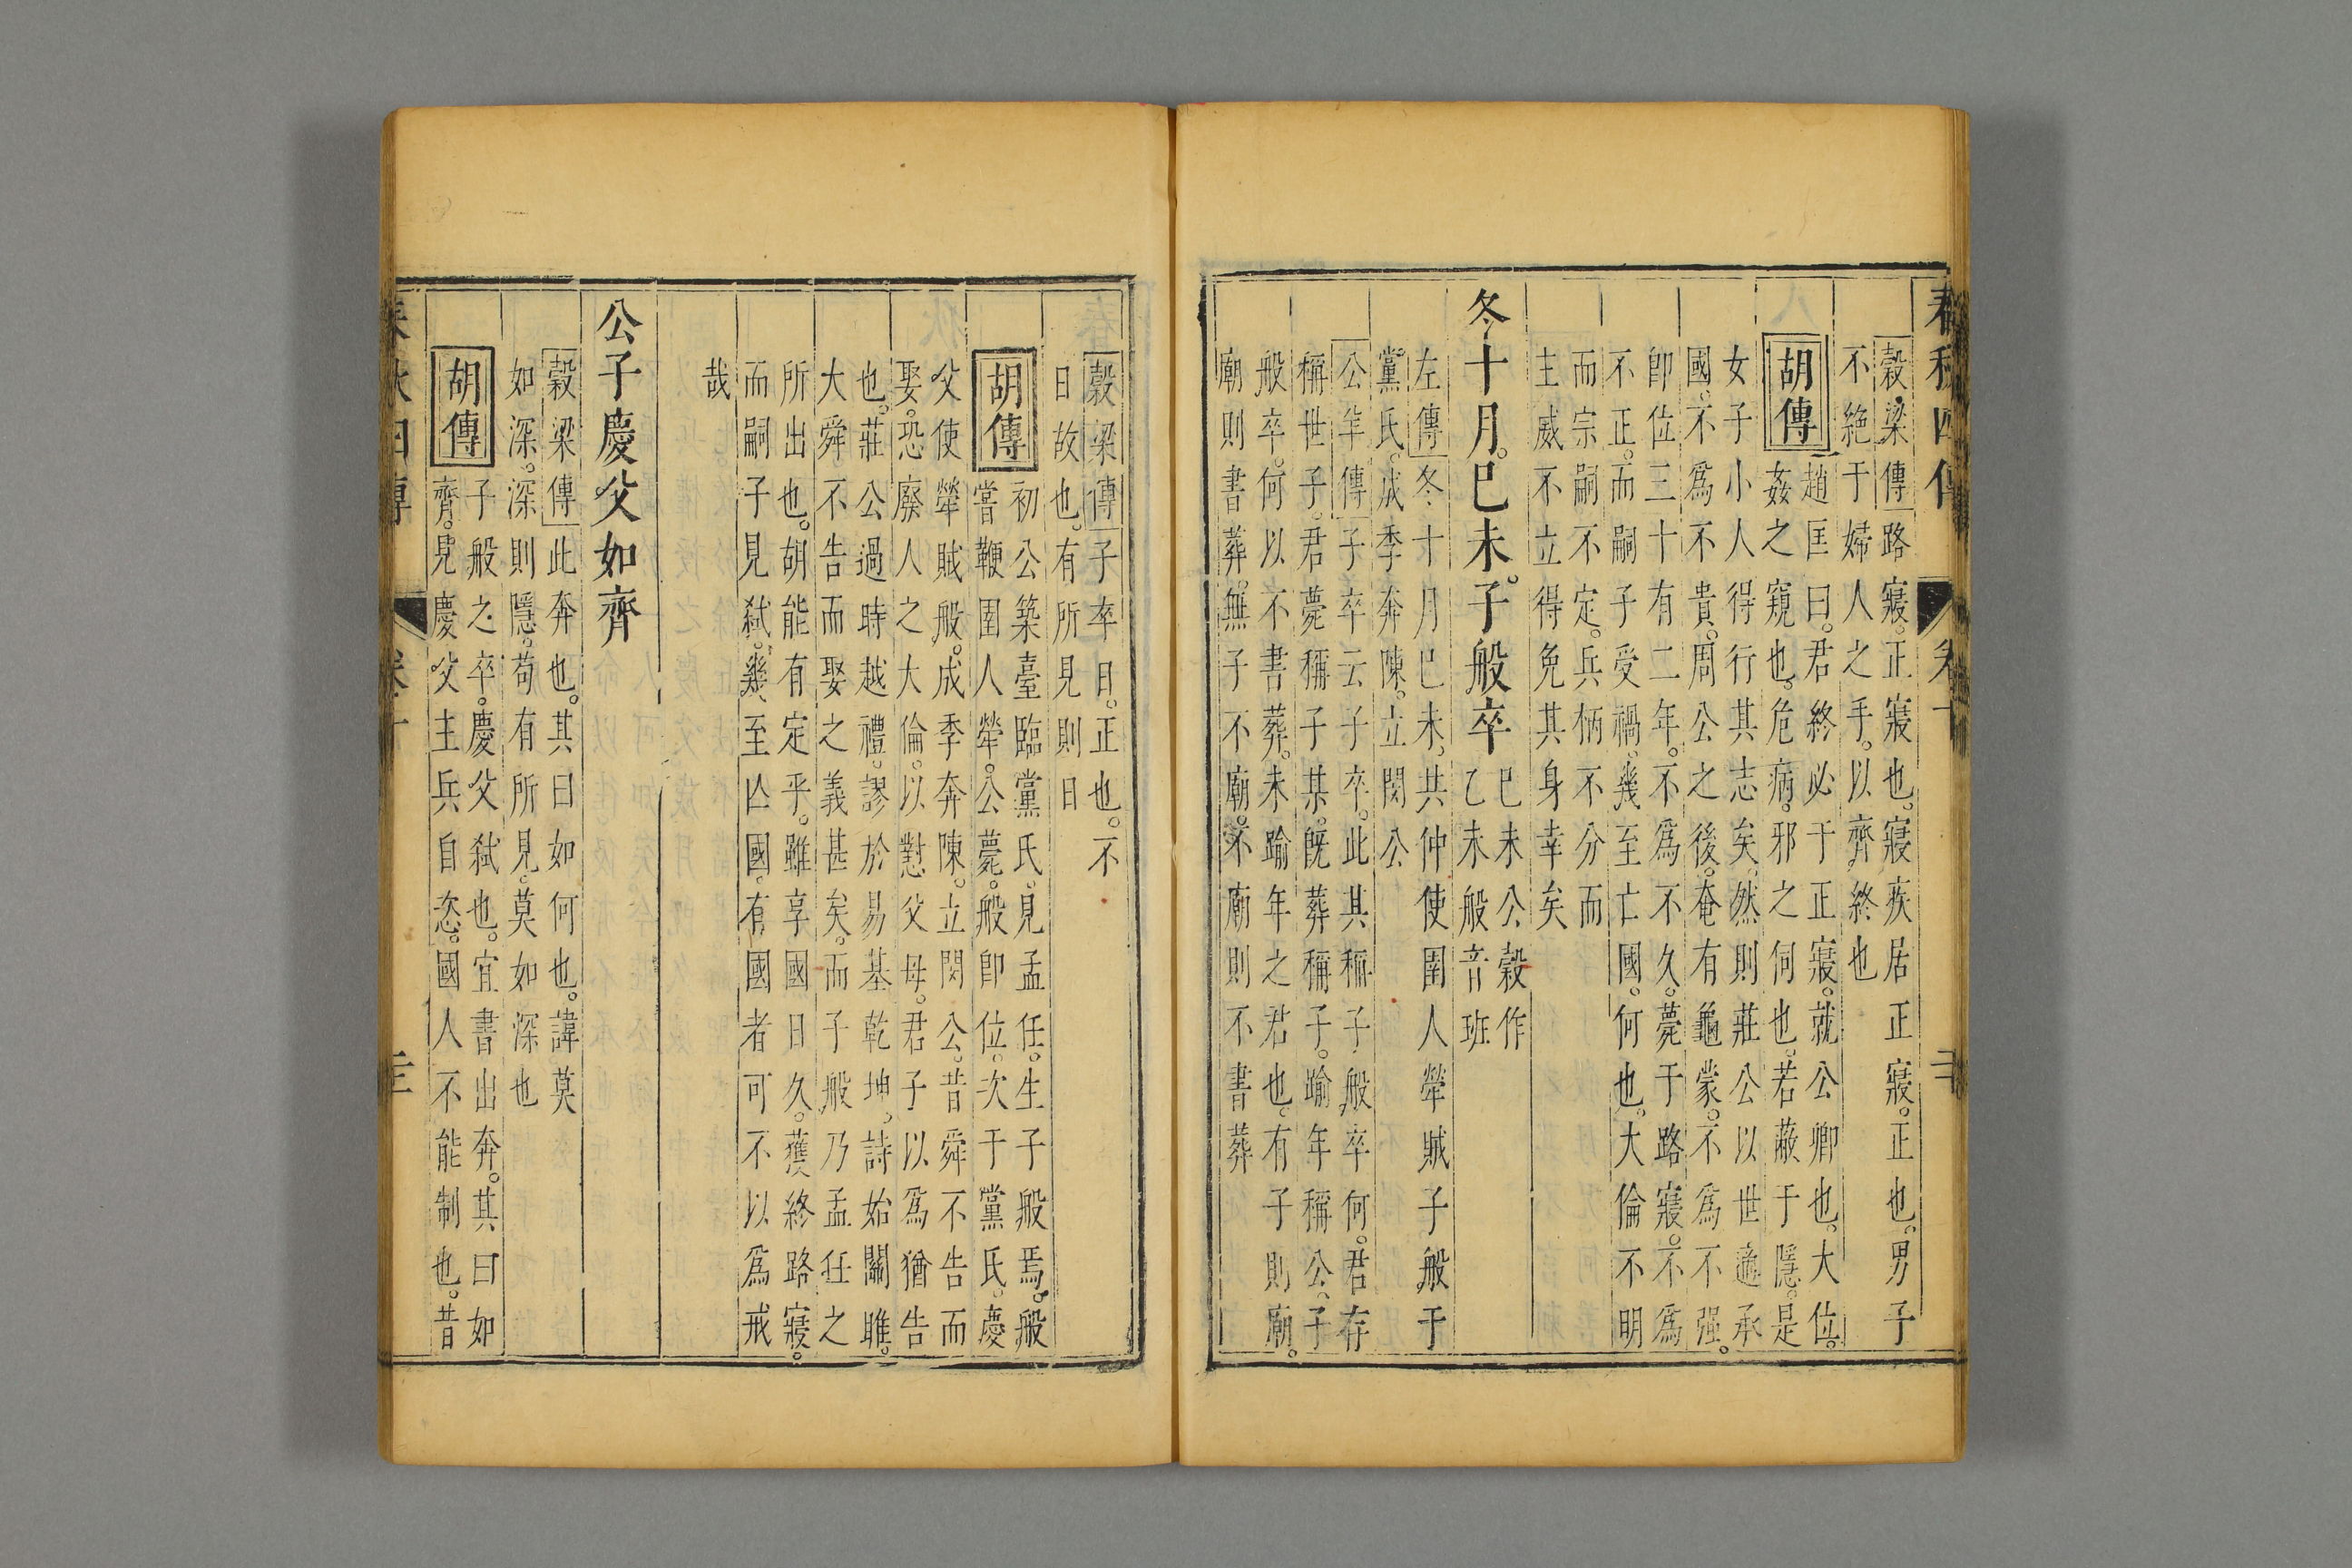 春秋四傳
卷十
穀梁傳路寢。正寢也。寢疾居正寢。正也。男子
不絶于婦人之手。以齊終也
胡傳
趙匡曰。君終必于正寢。就公卿也。大位。
姦之窺也。危病。邪之伺也。若蔽于隱。是
女子小人得行其志矣。然則莊公以世適承
國。不爲不貴。周公之後。奄有龜蒙。不爲不强。
卽位三十有二年。不爲不久。薨于路寢。不爲
不正。而嗣子受禍。幾至亡國。何也。大倫不明
而宗嗣不定。兵柄不分而
主威不立得免其身幸矣
冬十月。己未。子般卒
己未公穀作
乙未般音班
左傳冬十月己未。共仲使圉人犖賊子般于
黨氏。成季奔陳。立閔公
公羊傳子卒云子卒。此其稱子般卒何。君存
稱世子。君薨稱子某。旣葬稱子。踰年稱公。子
般卒。何以不書葬。未踰年之君也。有子則廟。
廟則書葬。無子不廟。不廟則不書葬
穀梁傳子卒日。正也。不
日故也。有所見則日
胡傳
初公築臺臨黨氏。見孟任。生子般焉。般
嘗鞭圉人犖。公薨。般卽位。次于黨氏。慶
父使犖賊般。成季奔陳。立閔公。昔舜不告而
娶。恐廢人之大倫。以懟父母。君子以爲猶告
也。莊公過時越禮。謬於易基乾坤。詩始關雎。
大舜不告而娶之義甚矣。而子般乃孟任之
所出也。胡能有定乎。雖享國日久。獲終路寢。
而嗣子見弑。幾至亾國。有國者可不以爲戒
哉
公子慶父如齊
穀梁傳此奔也。其曰如何也。諱莫
如深。深則隱。苟有所見。莫如深也
胡傳
子般之卒。慶父弑也。宜書出奔。其曰如
齊。見慶父主兵自恣。國人不能制也。昔
春秋四傳
卷十